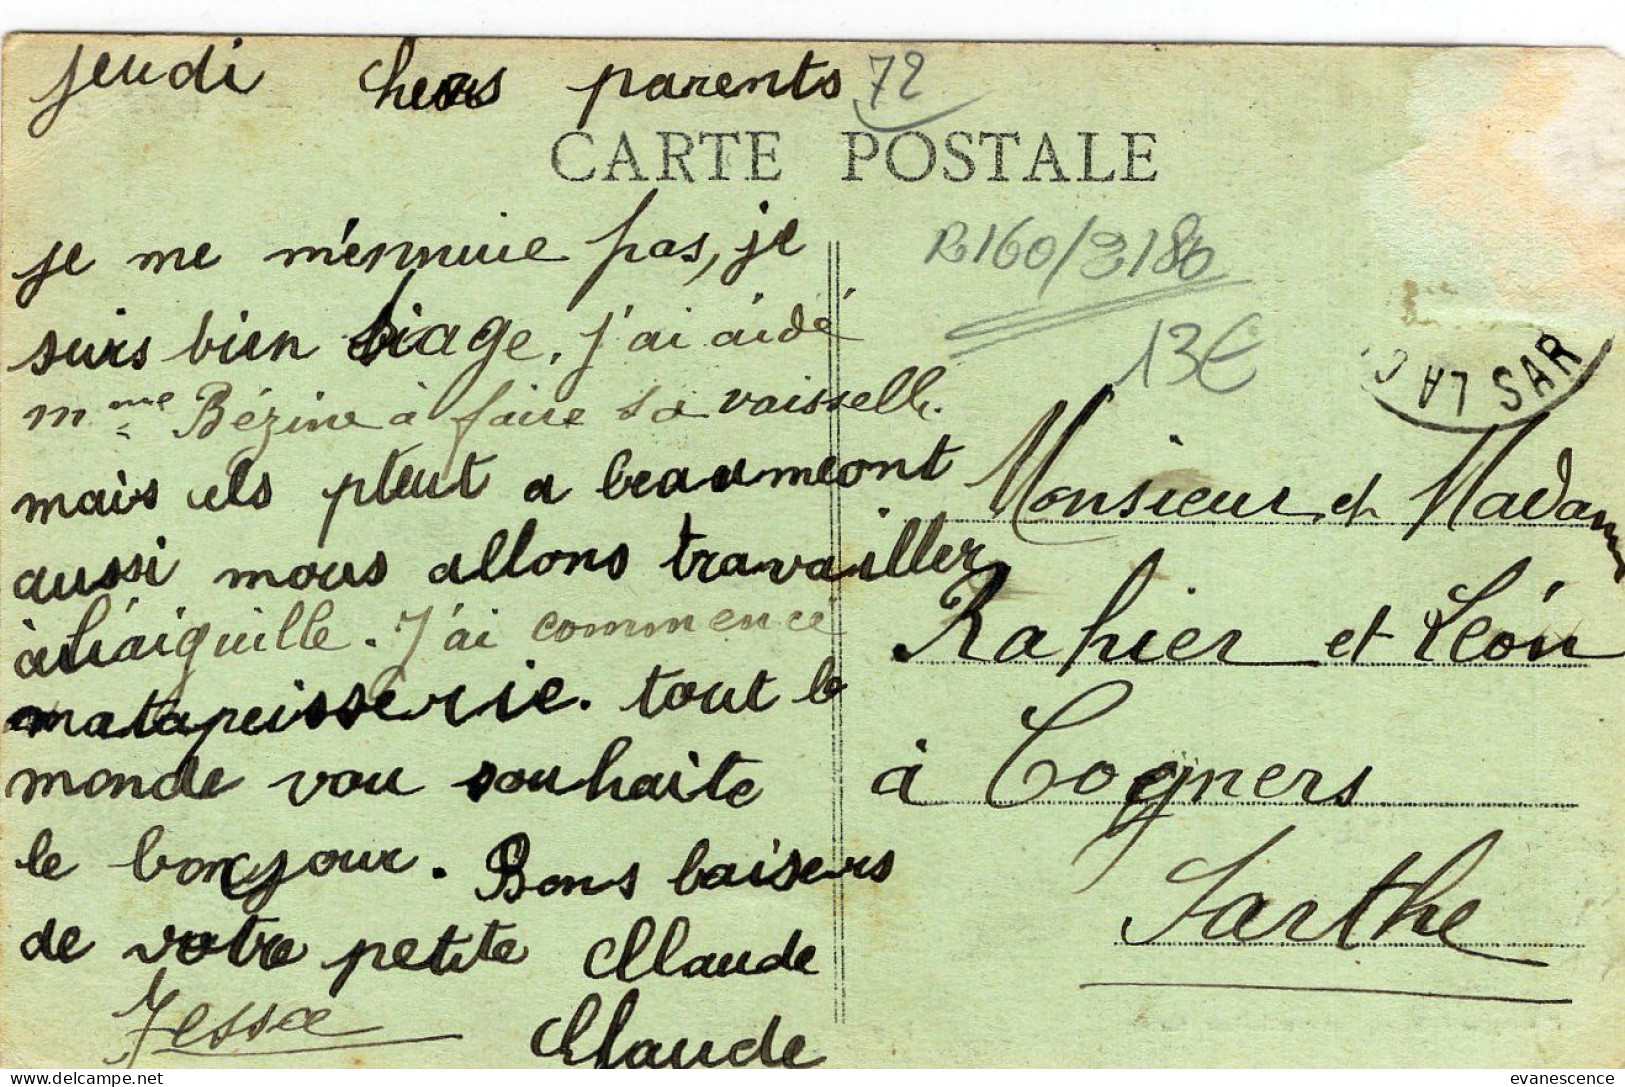 jeudi chers parents
72
CARTE POSTALE
je me m'ennuie pas, je
suis bien siage. j'ai aidé
Mme Bézine à faire sa vaisselle.
mais ils pleut a beaumeont
aussi nous allons travailler
à l'aiguille. J'ai commencé
matapeisserie. tout le
monde vou souhaite
le bonjour. Bons baisers
de votre petite Claude
Claude
R160/3180
13€
LA C SAR
Monsieur et Madame
Rahier et Léon
à Cogners
Sarthe
evanescence